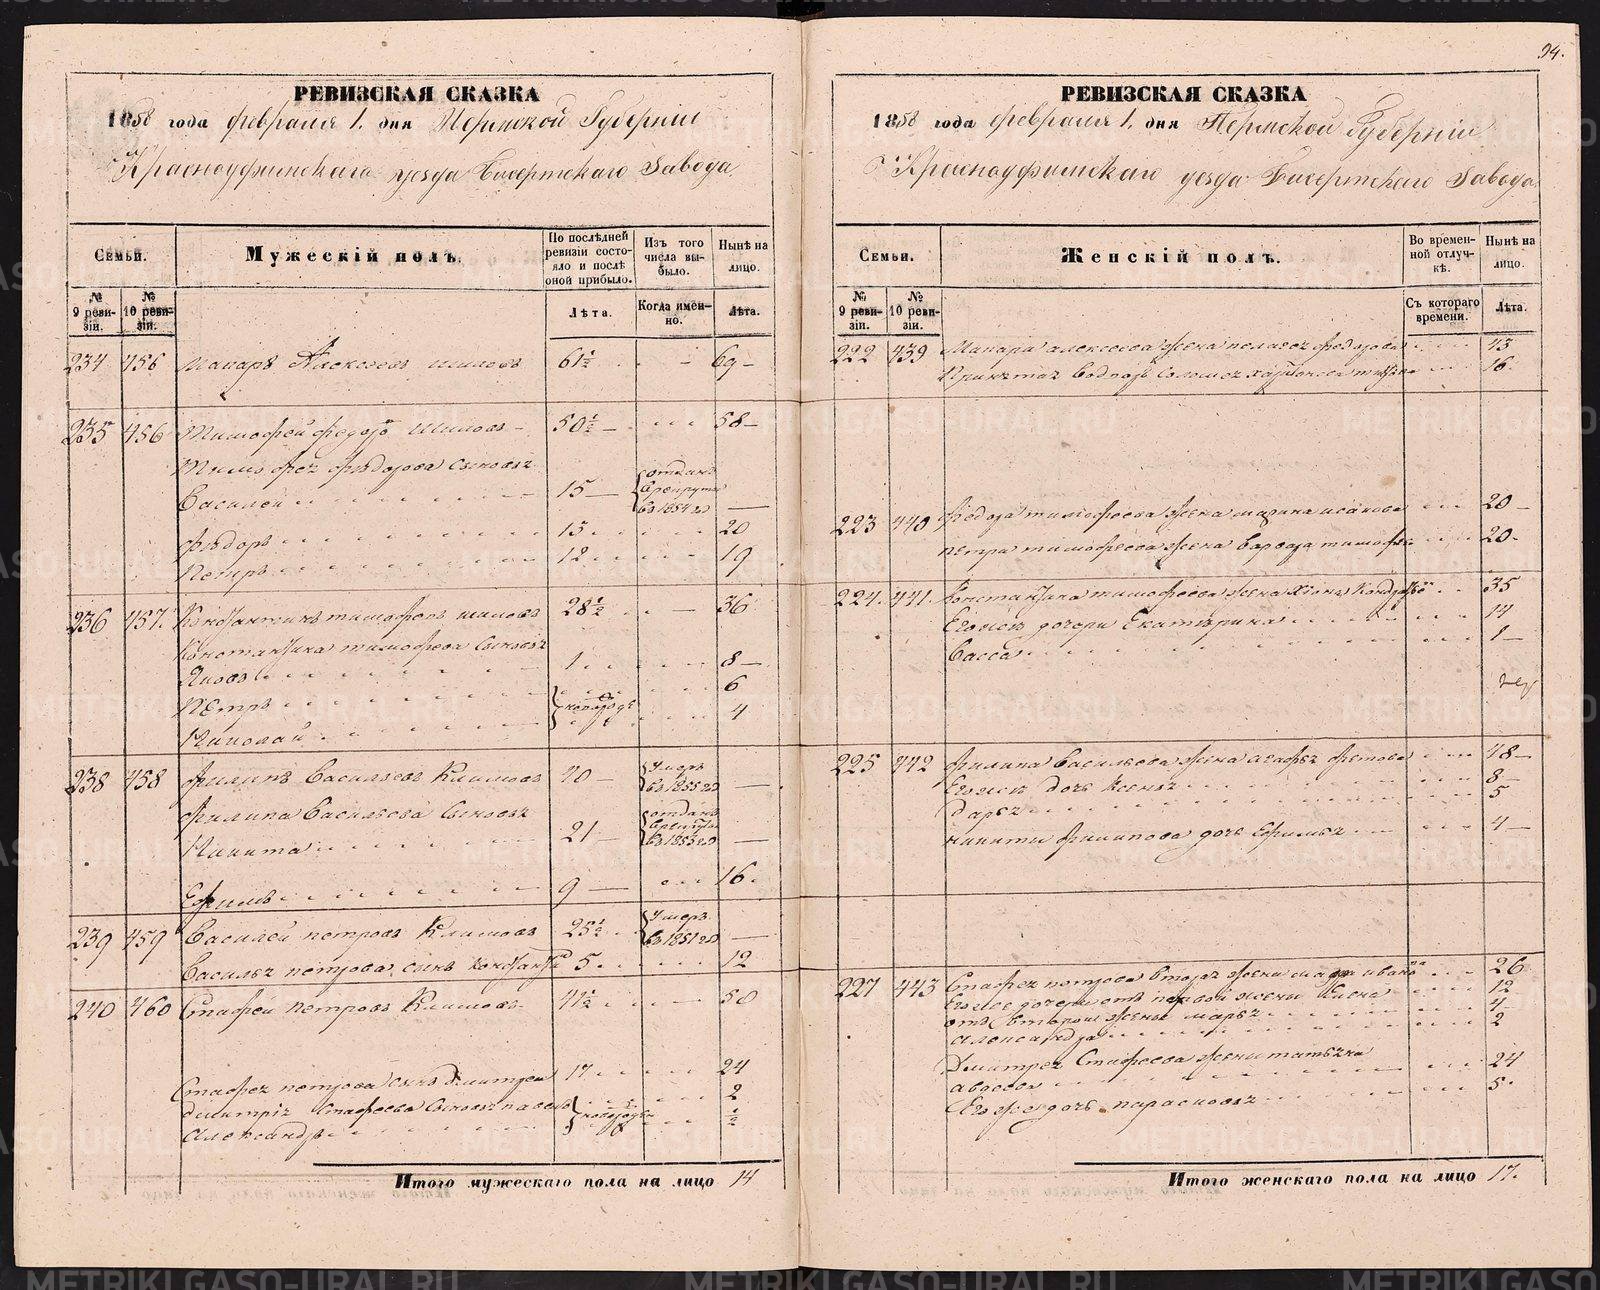 94.
РЕВИЗСКАЯ СКАЗКА
1858 года февраля 1. дня Пермской Губерніи
Красноуфимскаго уезда Бисертскаго Завода
Семьи.
Мужескій полъ.
По послѣдней ревизіи состояло и послѣ оной прибыло.
Изъ того числа выбыло.
Нынѣ на лицо.
№ 9 ревизіи.
№ 10 ревизіи.
Лѣта.
Когда именно.
Лѣта.
234 456 Макаръ Алексеевъ Шиловъ 61½ 69
235 456 Тимофей Федоро Шиловъ 50½ 58
Тимофея Федорова Сыновья
Василей 15 отданъ в рекруты в 1854 го
Федоръ 13 20
Петръ 12 19
236 457 Константинъ тимофеевъ шиловъ 28½ 36
Константина тимофеева Сыновья
Яковъ 1 8
Петръ 6
Николай 4
238 458 Филипъ Васильевъ Климовъ 70 Умеръ в 1855 го
Филипа Васильева Сыновья
Никита 21 отданъ в рекруты в 1853 го
Ефимъ 9 16
239 459 Василей петровъ Климовъ 25½ Умеръ в 1851 го
Василья петрова сынъ 5 12
240 460 Стафей петровъ Климовъ 41½ 50
Стафея петрова сынъ дмитрей 17 24
дмитрія Стафеева Сыновья павелъ 2
Александръ ½
Итого мужескаго пола на лицо 14
РЕВИЗСКАЯ СКАЗКА
1858 года февраля 1. дня Пермской Губерніи
Красноуфимскаго уезда Бисертскаго Завода
Семьи.
Женскій полъ.
Во временной отлучкѣ.
Нынѣ на лицо.
№ 9 ревизіи.
№ 10 ревизіи.
Съ котораго времени.
Лѣта.
222 439 Макара алексеева жена пелагея федорова 43
16
223 440 Федора тимофеева жена марина исакова 20
петра тимофеева жена варвара тимофее 20
224. 441. Константина тимофеева жена 35
Его же дочери Екатерина 14
Васса 1
225 442 Филипа Васильева жена агафья 48
Его же дочь Ксенья 8
Дарья 5
никиты филипова дочь Ефимья 4
227 443 Стафея петрова вторая жена марья ивано 26
Его же дочери отъ первой жены 12
отъ второй жены марья 4
александра 2
Дмитрея Стафеева жена татьяна
авдеева 24
Его же дочь парасковья 5
Итого женскаго пола на лицо 17.
METRIKI.GASO-URAL.RU